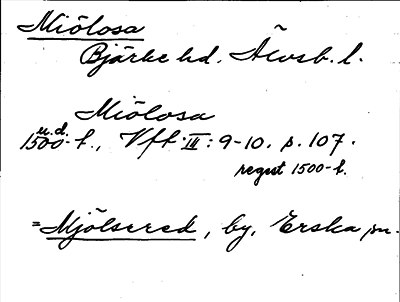 Miölosa
Bjärke hd. Älvsb. l.
Miölosa
u.d.
1500-t., Vft. III: 9-10. s. 107.
regest 1500-t.
= Mjölsered, by, Erska sn.